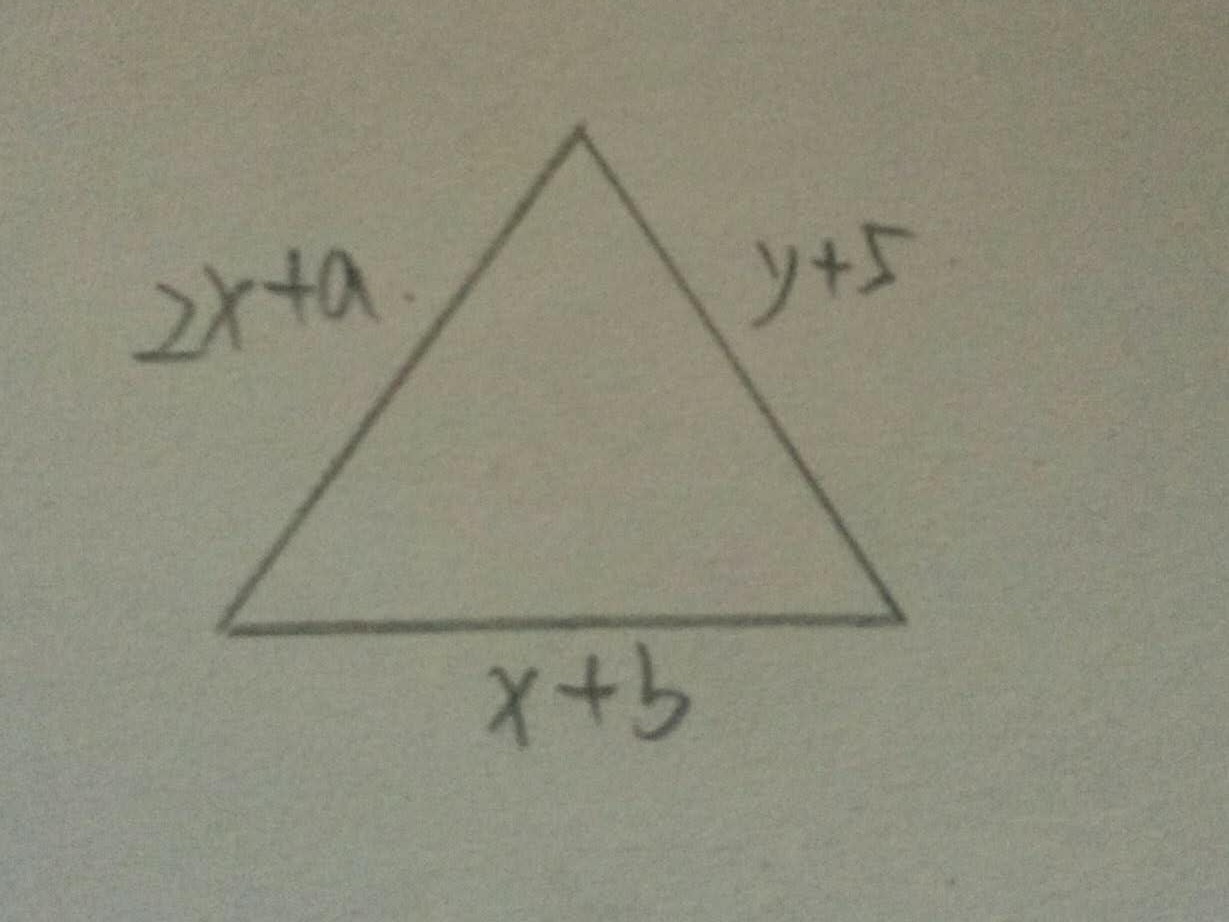 2x+a
y+5
x+b